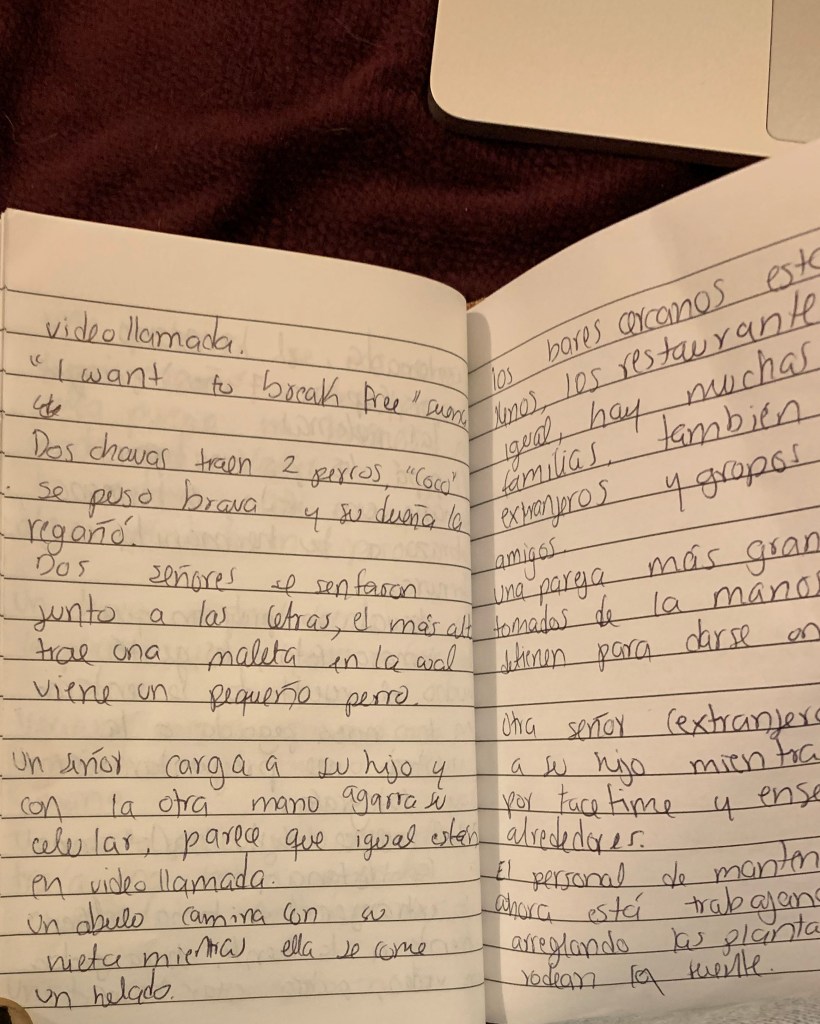 videollamada.
"I want to break free" suena
Dos chavas traen 2 perros, "Coco"
se puso brava y su dueña la
regañó.
Dos señores se sentaron
junto a las letras, el más alt
trae una maleta en la cual
viene un pequeño perro.
Un señor carga a su hijo y
con la otra mano agarra su
celular, parece que igual están
en videollamada.
Un abuelo camina con su
nieta mientras ella se come
un helado.
los bares cercanos est
llenos, los restaurante
igual, hay muchas
familias, también
extranjeros y grupos
amigos.
una pareja más gran
tomados de la manos
detienen para darse un
Otra señor (extranjero
a su hijo mientra
por facetime y ense
alrededores.
El personal de manten
ahora está trabajand
arreglando las planta
rodean la fuente.